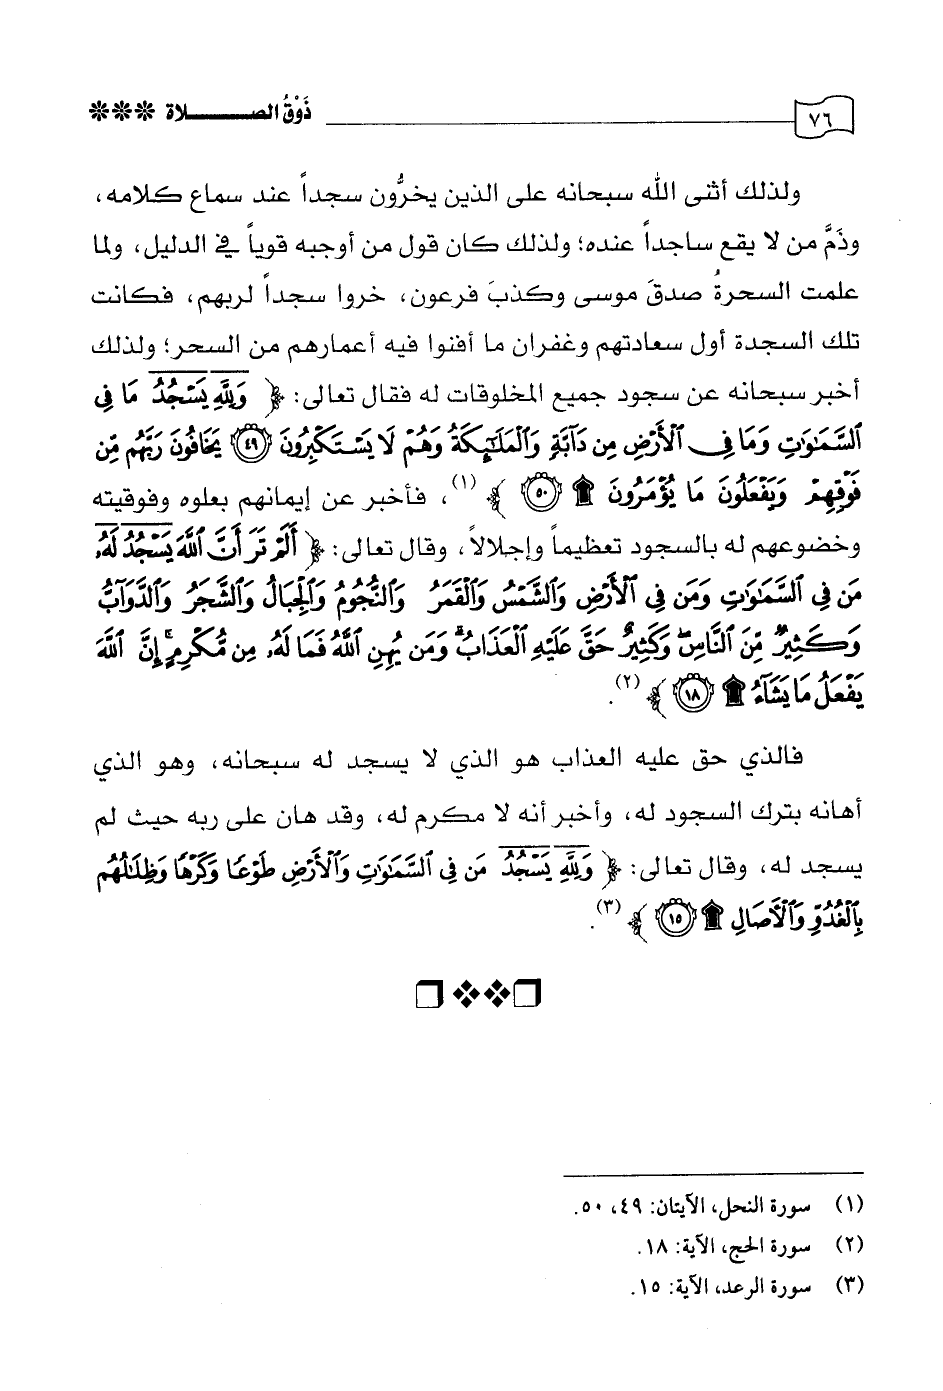 ٧٦ ذَوْقُ الصـــــــــلاة ***
ولذلك أثنى الله سبحانه على الذين يخرُّون سجداً عند سماع كلامه،
وذَمَّ من لا يقع ساجداً عنده؛ ولذلك كان قول من أوجبه قوياً في الدليل، ولما
علمت السحرةُ صدقَ موسى وكذبَ فرعون، خروا سجداً لربهم، فكانت
تلك السجدة أول سعادتهم وغفران ما أفنوا فيه أعمارهم من السحر؛ ولذلك
أخبر سبحانه عن سجود جميع المخلوقات له فقال تعالى: ﴿ وَلِلَّهِ يَسْجُدُ مَا فِى
ٱلسَّمَٰوَٰتِ وَمَا فِى ٱلْأَرْضِ مِن دَآبَّةٍ وَٱلْمَلَٰٓئِكَةُ وَهُمْ لَا يَسْتَكْبِرُونَ ٤٩ يَخَافُونَ رَبَّهُم مِّن
فَوْقِهِمْ وَيَفْعَلُونَ مَا يُؤْمَرُونَ ۩ ٥٠ ﴾ (١)، فأخبر عن إيمانهم بعلوه وفوقيته
وخضوعهم له بالسجود تعظيماً وإجلالاً، وقال تعالى: ﴿ أَلَمْ تَرَ أَنَّ ٱللَّهَ يَسْجُدُ لَهُۥ
مَن فِى ٱلسَّمَٰوَٰتِ وَمَن فِى ٱلْأَرْضِ وَٱلشَّمْسُ وَٱلْقَمَرُ وَٱلنُّجُومُ وَٱلْجِبَالُ وَٱلشَّجَرُ وَٱلدَّوَآبُّ
وَكَثِيرٌ مِّنَ ٱلنَّاسِ ۖ وَكَثِيرٌ حَقَّ عَلَيْهِ ٱلْعَذَابُ ۗ وَمَن يُهِنِ ٱللَّهُ فَمَا لَهُۥ مِن مُّكْرِمٍ ۚ إِنَّ ٱللَّهَ
يَفْعَلُ مَا يَشَآءُ ۩ ١٨ ﴾ (٢).
فالذي حق عليه العذاب هو الذي لا يسجد له سبحانه، وهو الذي
أهانه بترك السجود له، وأخبر أنه لا مكرم له، وقد هان على ربه حيث لم
يسجد له، وقال تعالى: ﴿ وَلِلَّهِ يَسْجُدُ مَن فِى ٱلسَّمَٰوَٰتِ وَٱلْأَرْضِ طَوْعًا وَكَرْهًا وَظِلَٰلُهُم
بِٱلْغُدُوِّ وَٱلْءَاصَالِ ۩ ١٥ ﴾ (٣).
(١) سورة النحل، الآيتان: ٤٩، ٥٠.
(٢) سورة الحج، الآية: ١٨.
(٣) سورة الرعد، الآية: ١٥.